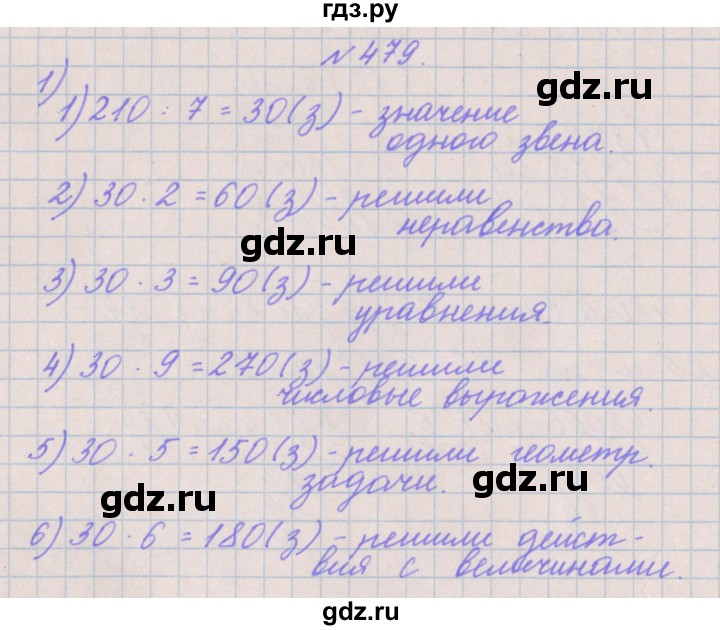 гдз.ру
№ 479.
1)
1) 210 : 7 = 30 (з) - значение
одного звена.
gdz.ru
2) 30 · 2 = 60 (з) - решили
неравенства.
gdz.ru
3) 30 · 3 = 90 (з) - решили
уравнения.
4) 30 · 9 = 270 (з) - решили
числовые выражения.
gdz.ru
5) 30 · 5 = 150 (з) - решили геометр.
задачи.
gdz.ru
gdz.ru
6) 30 · 6 = 180 (з) - решили дейст-
вия с величинами.
gdz.ru